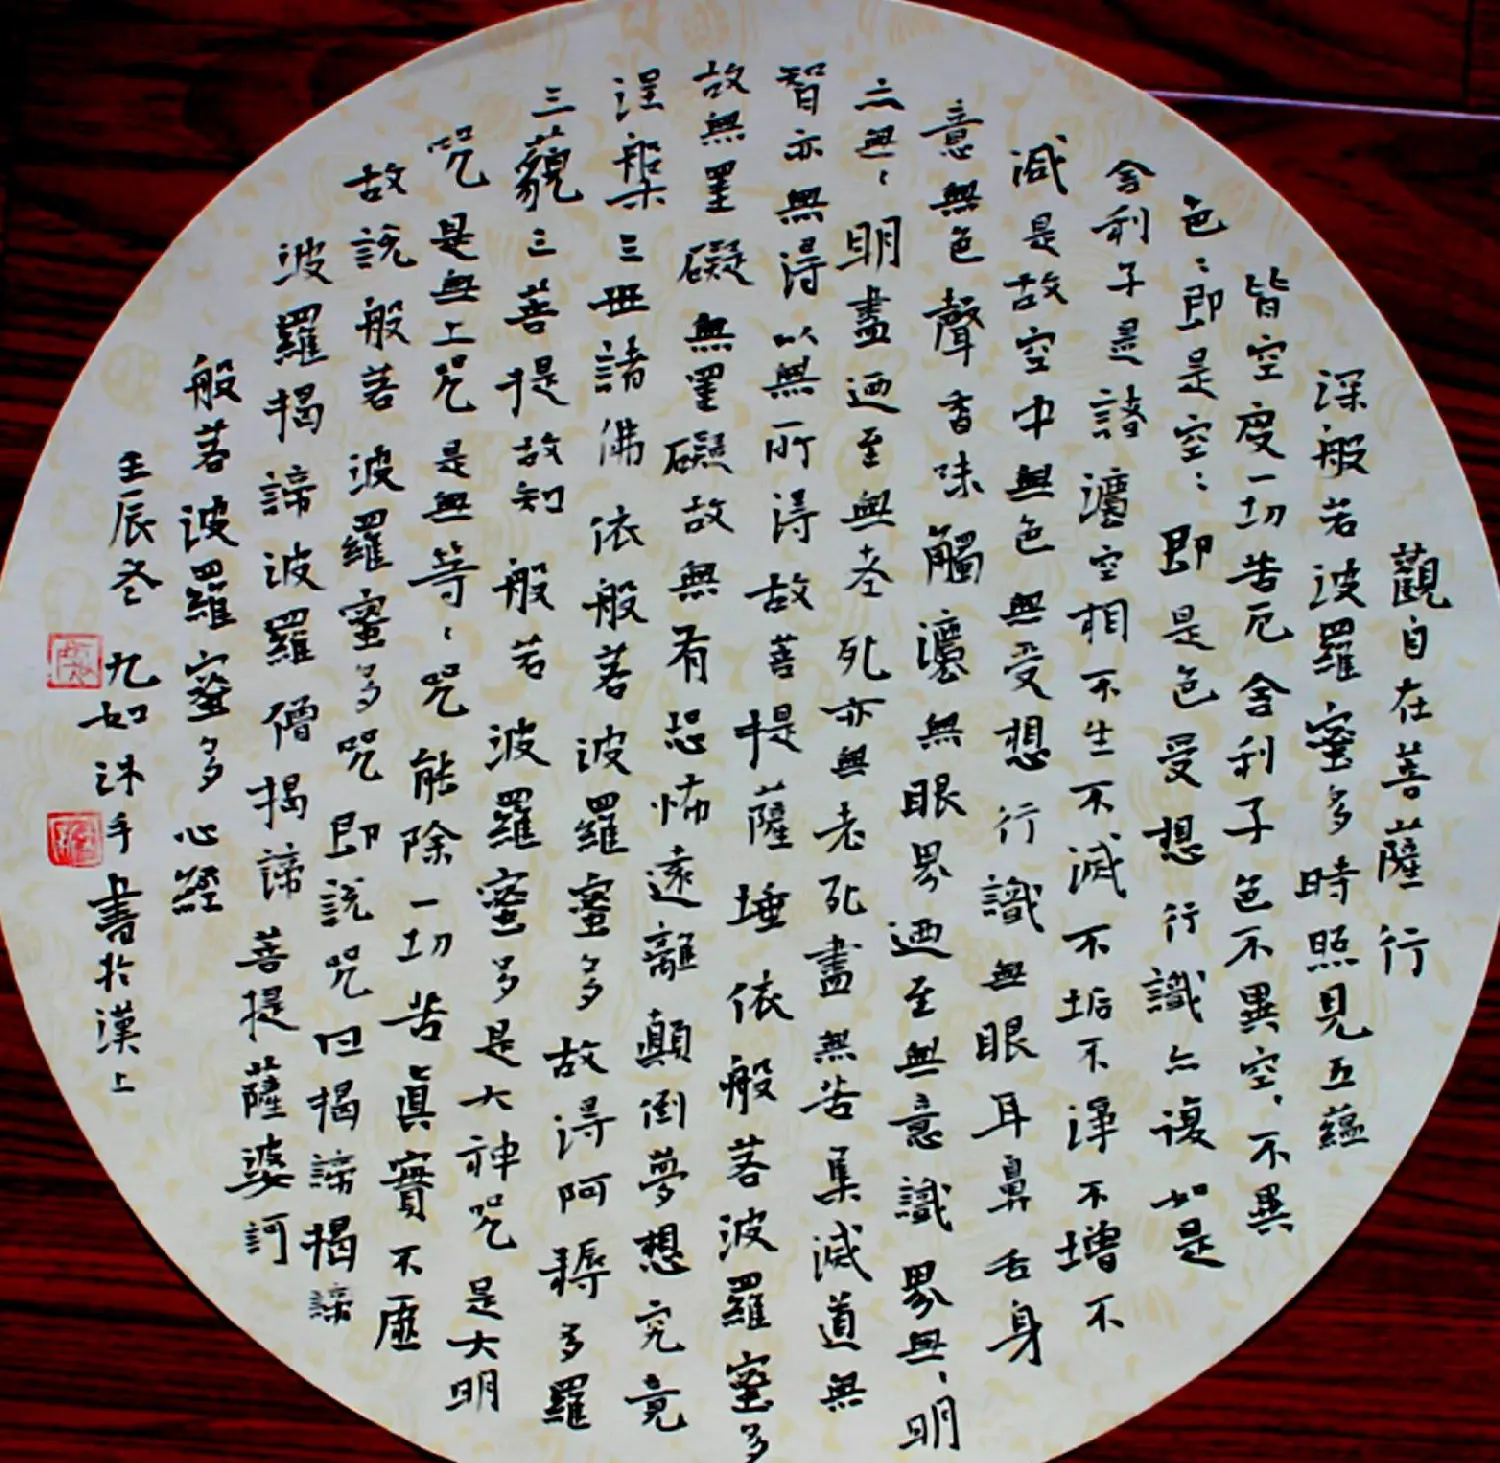 觀自在菩薩行
深般若波羅蜜多時照見五蘊
皆空度一切苦厄舍利子色不異空、不異
色、即是空、即是色受想行識亦復如是
舍利子是諸灋空相不生不滅不垢不淨不增不
減是故空中無色無受想行識無眼耳鼻舌身
意無色聲香味觸灋無眼界迺至無意識界無、明
亦無、明盡迺至無老死亦無老死盡無苦集滅道無
智亦無得以無所得故菩提薩埵依般若波羅蜜多
故無罣礙無罣礙故無有恐怖遠離顛倒夢想究竟
涅槃三世諸佛依般若波羅蜜多故得阿耨多羅
三藐三菩提故知般若波羅蜜多是大神咒是大明
咒是無上咒是無等、咒能除一切苦真實不虛
故說般若波羅蜜多咒即說咒曰揭諦揭諦
波羅揭諦波羅僧揭諦菩提薩婆訶
般若波羅蜜多心經
壬辰冬九如沐手書於漢上